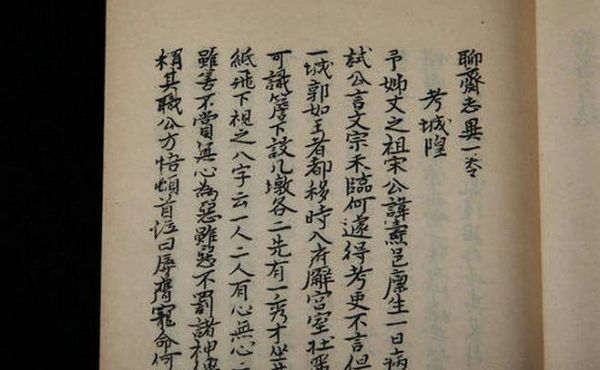 聊齋志異一卷
考城隍
予姊丈之祖宋公諱燾邑廩生一日病
試公言文宗未臨何遽得考吏不言但
一城郭如王者都移時入府廨宮室壯
可識簷下設几墩各二先有一秀才坐
紙飛下視之八字云一人二人有心無心
雖善不賞無心為惡雖惡不罰諸神
稱其職公方悟頓首泣曰辱膺寵命何